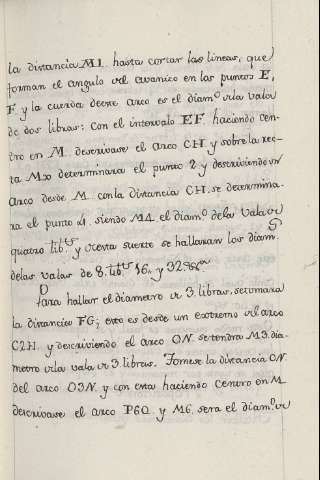 la distancia M1. hasta cortar las lineas, que
forman el angulo del avanico en los puntos E,
F y la cuerda deeste arco es el diam.º dela vala
de dos libras: con el intervalo EF haciendo cen-
tro en M descrivase el arco CH y sobre la rec-
ta M20 determinara el punto 2. y descriviendo un
arco desde M con la distancia CH. se determina-
ra el punto 4. siendo M4. el diam.º dela vala de
quatro lib.s y deesta suerte se hallaran los diam.s
delas valas de 8. lib.s 16. y 32.
Para hallar el diametro de 3. libras, se tomara
la distancia FG; esto es desde un extremo del arco
C2H. y descriviendo el arco ON. se tendra M3. dia-
metro dela vala de 3. libras. Tomese la distancia ON
del arco O3N. y con esta haciendo Centro en M
descrivase el arco P6Q. y M6. sera el diam.º de